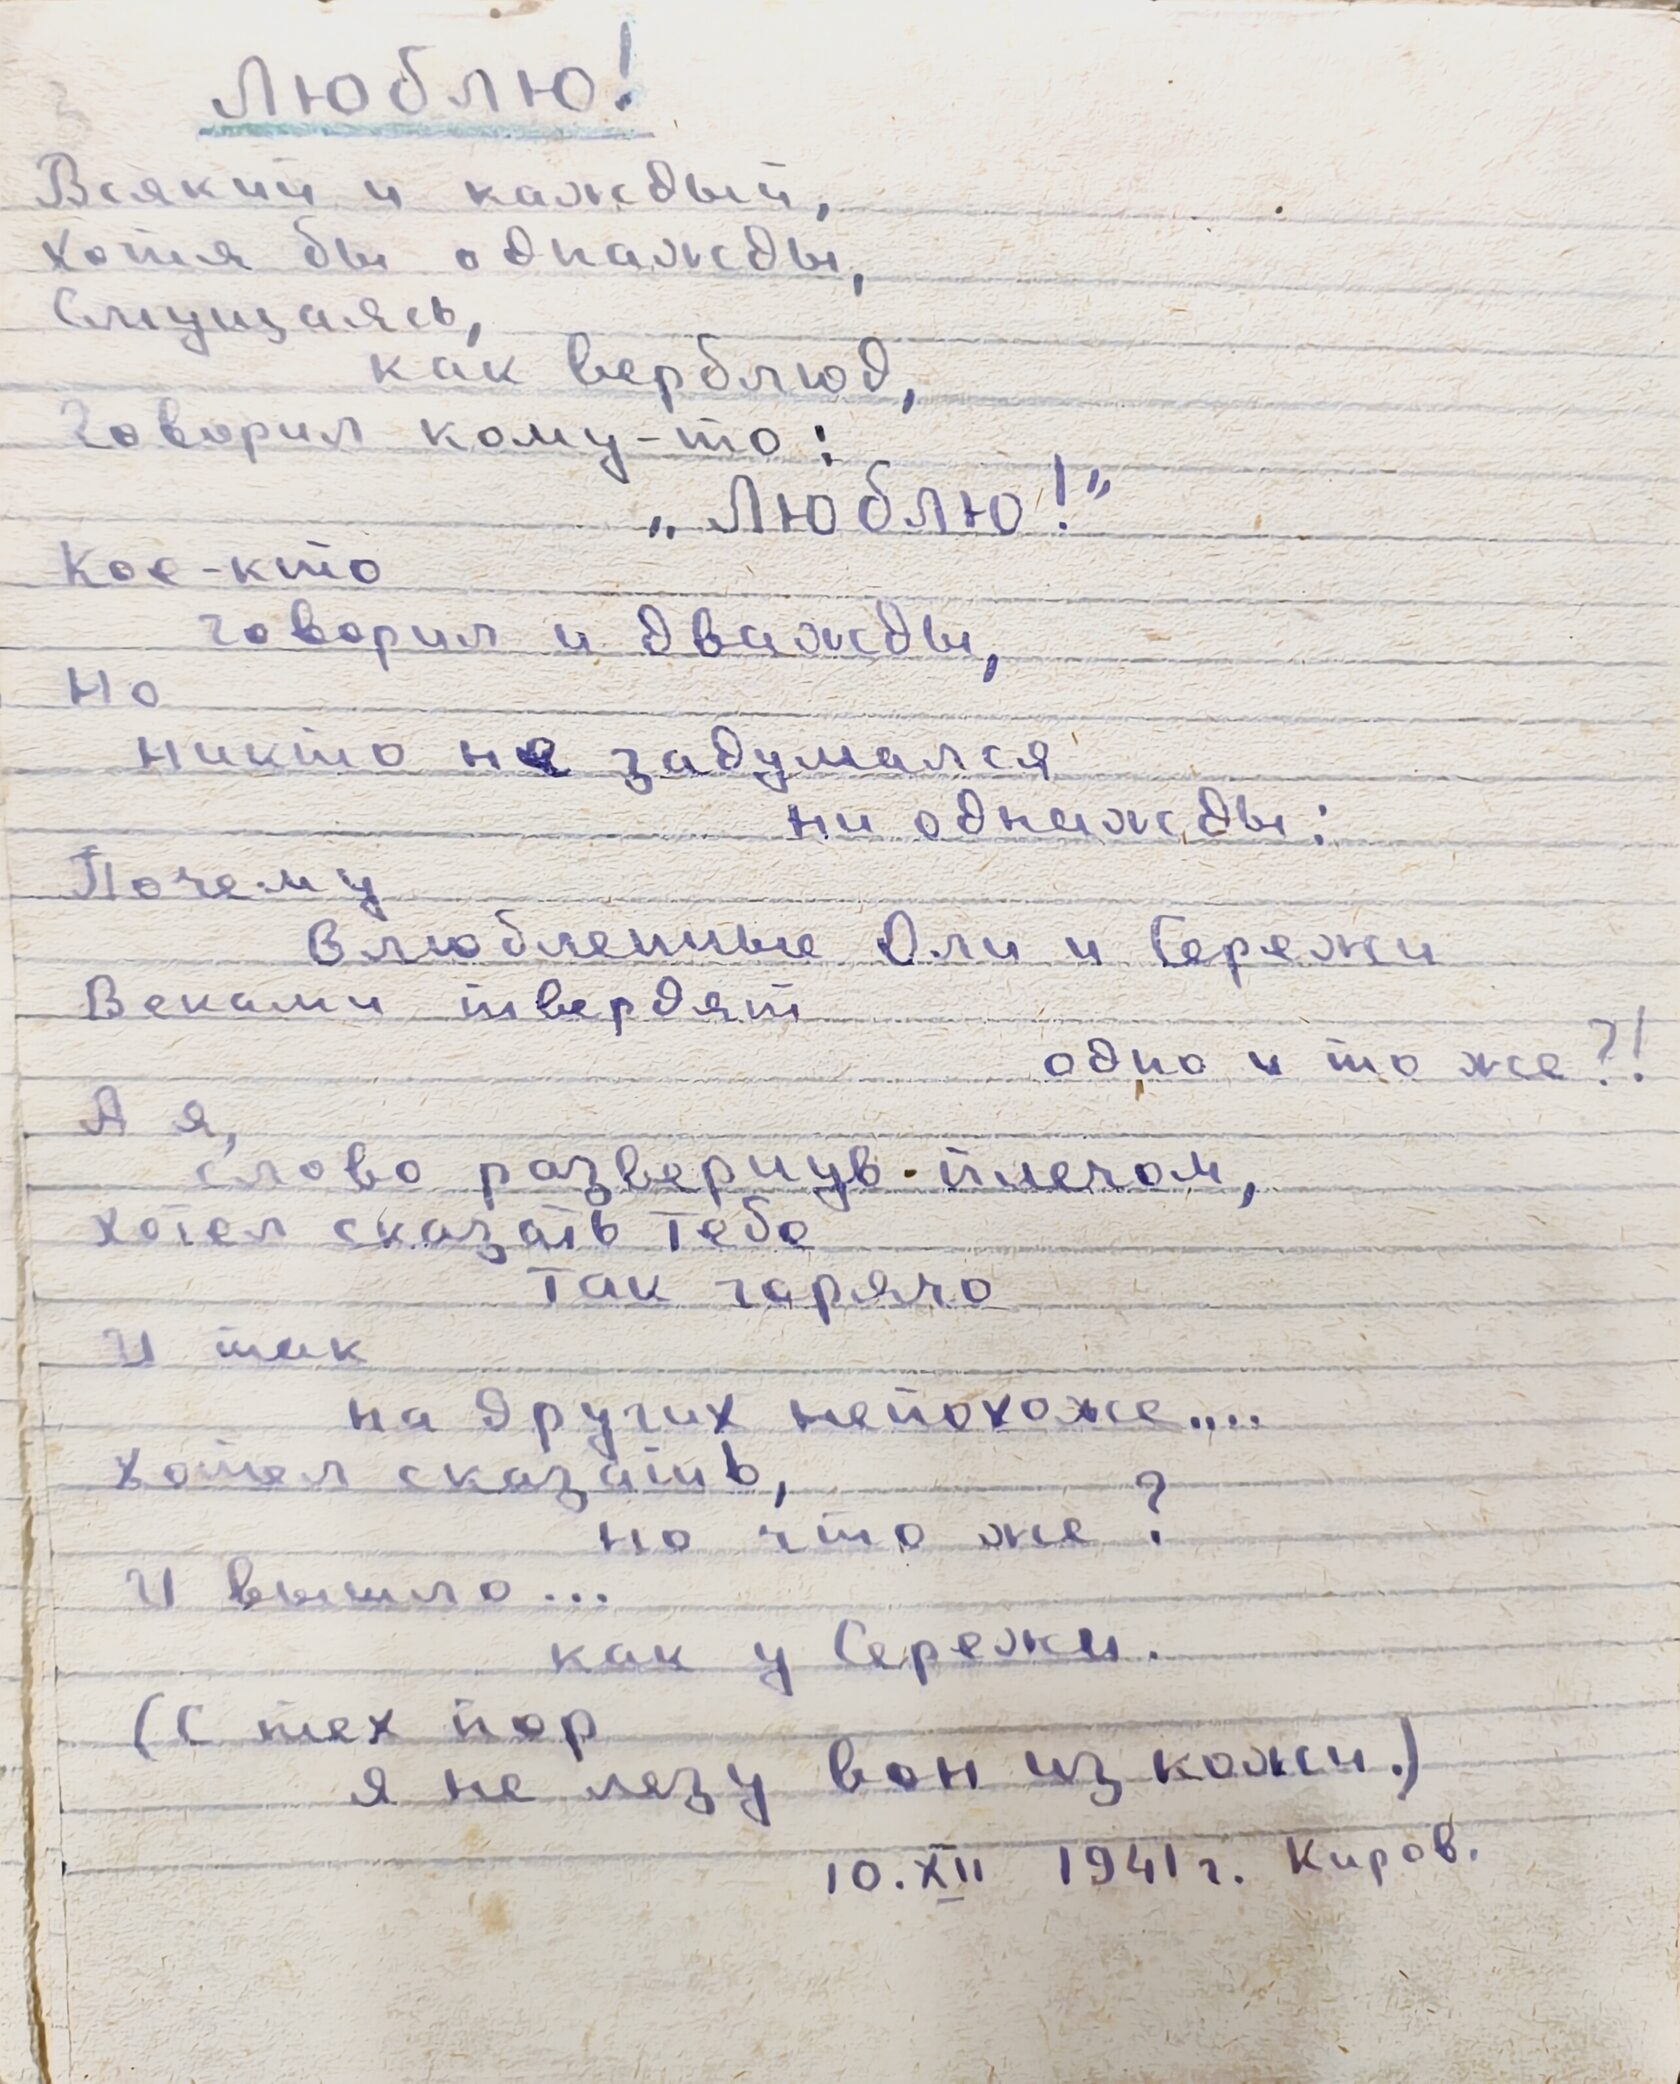 Люблю!
Всякий и каждый,
Хотя бы однажды,
Смущаясь,
как верблюд,
Говорил кому-то:
„Люблю!”
Кое-кто
говорил и дважды,
Но
никто не задумался
ни однажды:
Почему
Влюбленные Оли и Сережи
Веками твердят
одно и то же?!
А я,
слово развернув плечом,
хотел сказать тебе
так горячо
И так
на других непохоже....
Хотел сказать,
но что же?
И вышло...
как у Сережи.
(С тех пор
я не лезу вон из кожи.)
10.XII 1941 г. Киров.